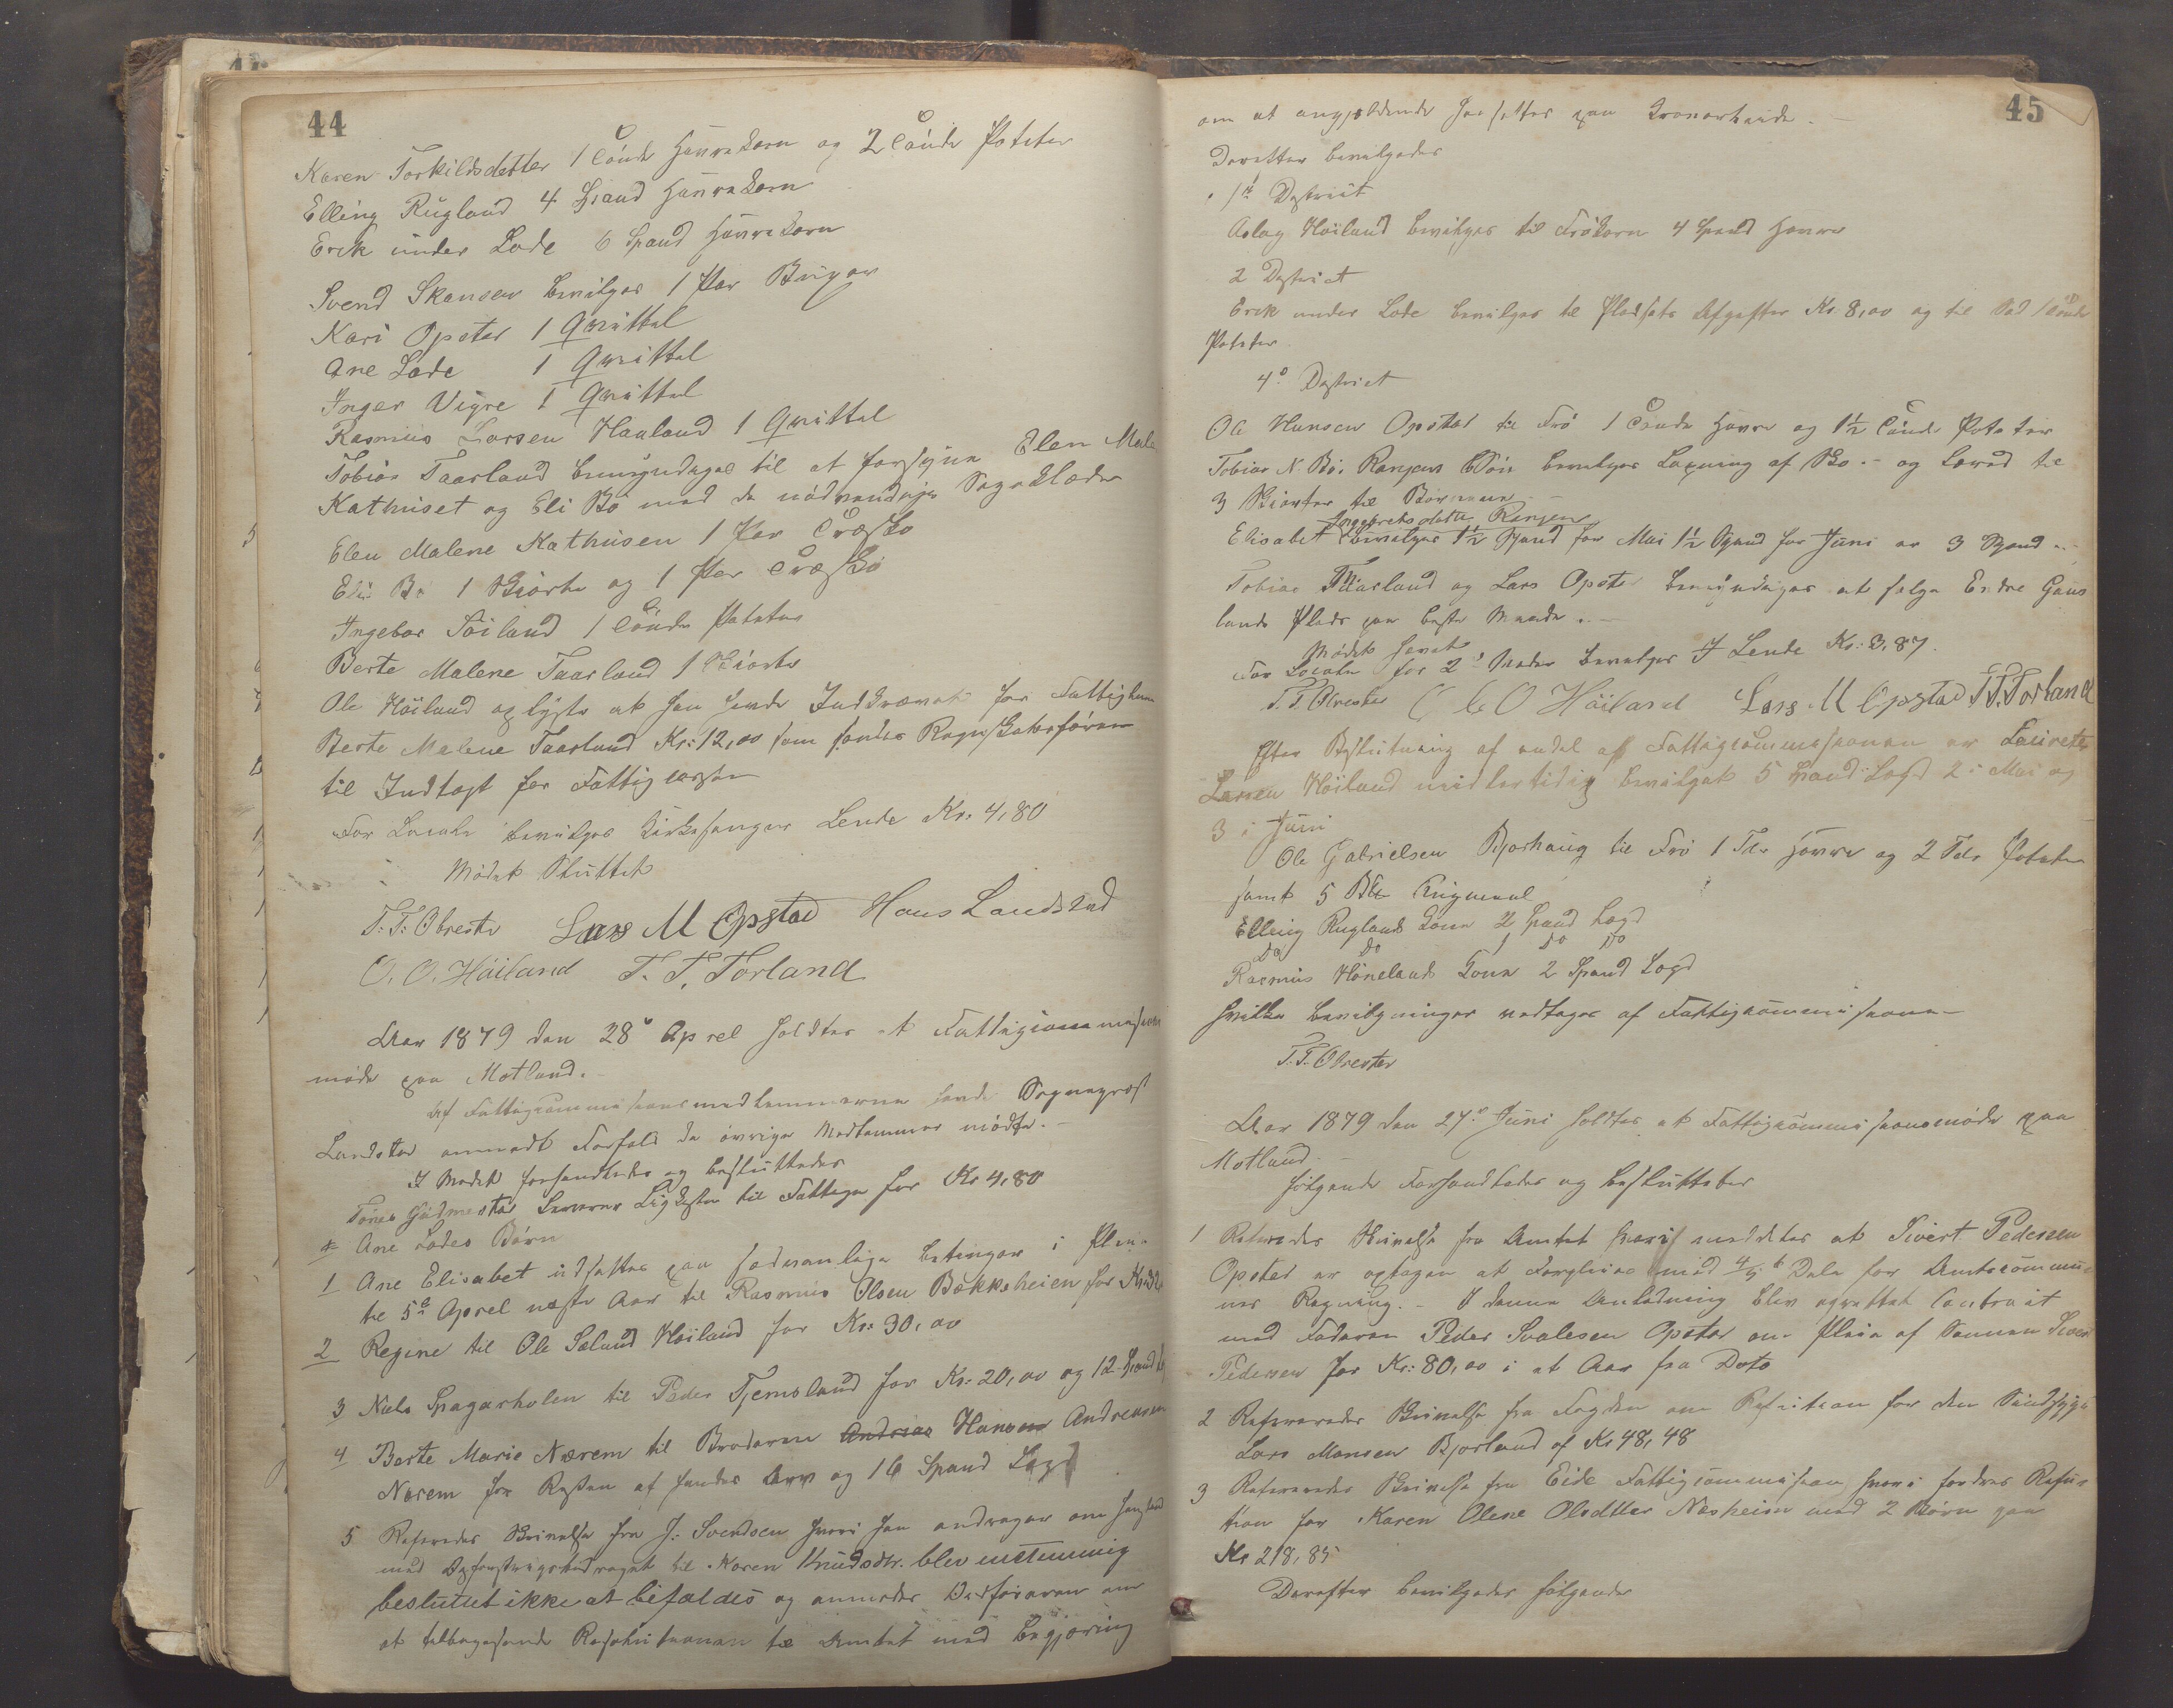 44
Karen Torkildsdatter 1 Tønde Havrekorn og 2 Tønde Poteter
Elling Rugland 4 Spand Havrekorn
Erik under Lode 6 Spand Havrekorn
Svend Skansen bevilges 1 Par Buxer
Kari Opstad 1 Qvittel
Ane Lode 1 Qvittel
Inger Vigre 1 Qvittel
Rasmus Larsen Haaland 1 Qvittel
Tobias Taarland bemyndiges til at forsyne Elen Male
Kathuset og Eli Bø med de nødvendige Sengeklæder
Elen Malene Kathusen 1 Par Træsko
Eli Bø 1 Skiorte og 1 Par Træsko
Ingebor Søiland 1 Tønde Poteter
Berte Malene Taarland 1 Skiorte
Ole Høiland oplyste at han havde Indkrævet for Fattiglem
Berte Malene Taarland Kr: 12,00 som sendes Regnskabsføreren
til Indtægt for Fattigkassen
For Locale bevilges Kirkesanger Lende Kr. 4,80
Mødet Sluttet
T. T. Obrestad Lars M Opstad Hans Landstad
O. O. Høiland T. T. Torland
Aar 1879 den 28de Aprel holdtes et Fattigcommissions
møde paa Motland.
Af Fattigcommissionsmedlemmerne havde Sogneprest
Landstad anmeldt Forfald de øvrige Medlemmer mødte.-
I Mødet forhandledes og besluttedes
Tønes Gudmestad leverer Ligkister til Fattige for Kr 4,80
Ane Lodes Børn
1 Ane Elisabet udsættes paa sædvanlige Betingelser i Pleie
til 5te Aprel næste Aar til Rasmus Olsen Bakkeheien for
2 Regine til Ole Sælund Høiland for Kr: 30,00
3 Nils Spagarholen til Peder Tjemsland for Kr: 20,00 og 12 Spand
4 Berte Marie Nærem til Broderen Andrias Hansen Andreasen
Nærem for Resten af hendes Arv og 16 Spand Lægd
5 Refereredes Skrivelse fra J. Svendsen hvori han andrager om
med Opfostringsbidraget til Karen Knudsdtr. blev enstemmig
besluttet ikke at bifaldes og anmodes Ordføreren om
at tilbagesende Resolutionen til Amtet med Begjæring
45
om at angjældende hensættes paa Tvangsarbeide.-
Derefter bevilgedes
1ste District
Aslag Høiland bevilges til Frøkorn 4 Spand Havre
2 District
Erik under Lode bevilges til Pladsets Afgifter Kr. 8,00 og til Sæd 1 Tønde
Poteter.
4de District
Ole Hansen Opstad til Frø 1 Tønde Havre og 1½ Tønde Poteter
Tobias N. Bø, Ranjens Søn bevilges Lapning af Sko.- og Lærred til
3 Skiorter til Børnene.-
Ingebretsdatter Ranjen
Elisabet bevilges 1½ Spand for Mai 1½ Spand for Juni er 3 Spand.-
Tobias Taarland og Lars Opstad bemyndiges at sælge Endre Gaus
lands Plads paa beste Maade.-
Mødet hævet
For Locale for 2de Møder bevilges J Lende Kr: 3,87.
T. T. Obrestad O. O Høiland Lars M Opstad T. T. Torland
Efter Beslutning af endel af Fattigcommissionen er Laurets
Larsen Høiland midlertidig bevilget 5 Spand Lægd 2 i Mai og
3 i Juni
Ole Gabrielsen Bjorhaug til Frø 1 Tde Havre og 2 Tde Poteter
samt 5 Rugmeel
Elling Ruglands Kone 2 Spand Lægd
Do Do 1 Do Do
Rasmus Hønelands Kone 2 Spand Lægd
hvilke Bevilgninger vedtages af Fattigcommissionen
T. T. Obrestad
Aar 1879 den 27de Juni holdtes et Fattigcommissionsmøde paa
Motland.-
følgende Forhandledes og besluttedes
1 Refereredes Skrivelse fra Amtet hvori meddeles at Sivert Pedersen
Opstad er optagen til Forpleining med 4/5 Dele for Amtscommu-
nes Regning.- I denne Anledning blev oprettet Contract
med Faderen Peder Svalesen Opstad om Pleie af Sønnen Sivert
Pedersen for Kr: 80,00 i et Aar fra Dato
2 Refereredes Skrivelse fra Fogden om Refusion for den Sindssyge
Lars Monsen Bjorland af Kr 48,48
3 Refereredes Skrivelse fra Eide Fattigcommission hvori fordres Refu-
tion for Karen Olene Olsdtter Næsheim med 2 Børn paa
Kr 218,85
Derefter bevilgedes følgende